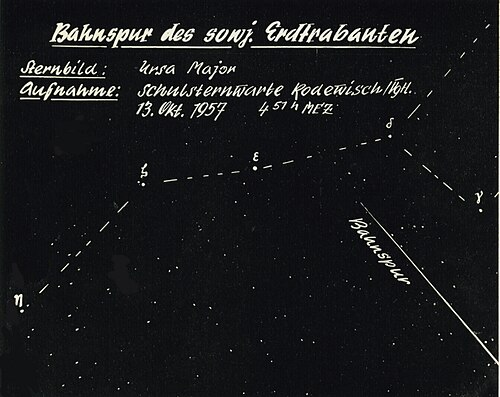 Bahnspur des sowj. Erdtrabanten
Sternbild: Ursa Major
Aufnahme: Schulsternwarte Rodewisch/Vgtl.
13. Okt. 1957 4 51h MEZ
δ
ε
ζ
γ
Bahnspur
η